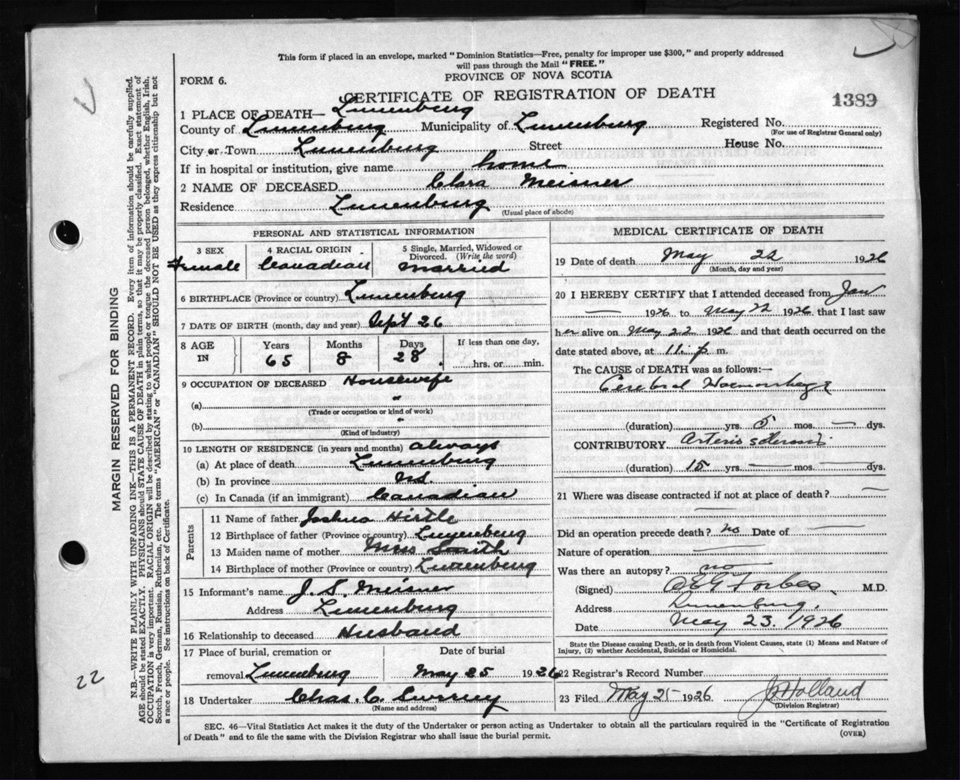 This form if placed in an envelope, marked "Dominion Statistics—Free, penalty for improper use $300," and properly addressed
will pass through the Mail "FREE."
FORM 6.
PROVINCE OF NOVA SCOTIA
CERTIFICATE OF REGISTRATION OF DEATH
1389
1 PLACE OF DEATH— Lunenburg
County of Lunenburg Municipality of Lunenburg Registered No.
(For use of Registrar General only)
City or Town Lunenburg Street House No.
If in hospital or institution, give name home
2 NAME OF DECEASED Clara Meisner
Residence Lunenburg
(Usual place of abode)
PERSONAL AND STATISTICAL INFORMATION
3 SEX 4 RACIAL ORIGIN 5 Single, Married, Widowed or
Divorced. (Write the word)
Female Canadian Married
6 BIRTHPLACE (Province or country) Lunenburg
7 DATE OF BIRTH (month, day and year) Sept 26
8 AGE IN Years Months Days If less than one day,
65 8 28 hrs. or min.
9 OCCUPATION OF DECEASED Housewife
(a) "
(Trade or occupation or kind of work)
(b) "
(Kind of industry)
10 LENGTH OF RESIDENCE (in years and months) always
(a) At place of death Lunenburg
(b) In province N.S.
(c) In Canada (if an immigrant) Canadian
Parents
11 Name of father Joshua Hirtle
12 Birthplace of father (Province or country) Lunenburg
13 Maiden name of mother Miss Smith
14 Birthplace of mother (Province or country) Lunenburg
15 Informant's name J. S. Meisner
Address Lunenburg
16 Relationship to deceased Husband
17 Place of burial, cremation or Date of burial
removal Lunenburg May 25 1926
18 Undertaker Chas. C.
(Name and address)
MEDICAL CERTIFICATE OF DEATH
19 Date of death May 22 1926
(Month, day and year)
20 I HEREBY CERTIFY that I attended deceased from Jan
— 1926 to May 22 1926 that I last saw
her alive on May 22 1926 and that death occurred on
date stated above, at 11. p m.
The CAUSE of DEATH was as follows:—
Cerebral Haemorrhage
(duration) — yrs. 5 mos. — dys.
CONTRIBUTORY Arterio sclerosis
(duration) 15 yrs. — mos. — dys.
21 Where was disease contracted if not at place of death? —
Did an operation precede death? no Date of —
Nature of operation —
Was there an autopsy? no
(Signed) Forbes M.D.
Address Lunenburg,
Date May 23. 1926
State the Disease causing Death, or in death from Violent Causes, state (1) Means and Nature of
Injury, (2) whether Accidental, Suicidal or Homicidal.
22 Registrar's Record Number
23 Filed May 25 1926 J Holland
(Division Registrar)
SEC. 46—Vital Statistics Act makes it the duty of the Undertaker or person acting as Undertaker to obtain all the particulars required in the "Certificate of Registration
of Death" and to file the same with the Division Registrar who shall issue the burial permit.
(OVER)
MARGIN RESERVED FOR BINDING
N.B.—WRITE PLAINLY WITH UNFADING INK—THIS IS A PERMANENT RECORD. Every item of information should be carefully supplied.
AGE should be stated EXACTLY. PHYSICIANS should STATE CAUSE OF DEATH in plain terms, so that it may be properly classified. Exact statement of
OCCUPATION is very important. RACIAL ORIGIN will be described by stating to what people or tongue the deceased person belonged, whether English, Irish,
Scotch, French, German, Russian, Ruthenian, etc. The terms "AMERICAN" or "CANADIAN" SHOULD NOT BE USED as they express citizenship but not
a race or people. See instructions on back of Certificate.
22